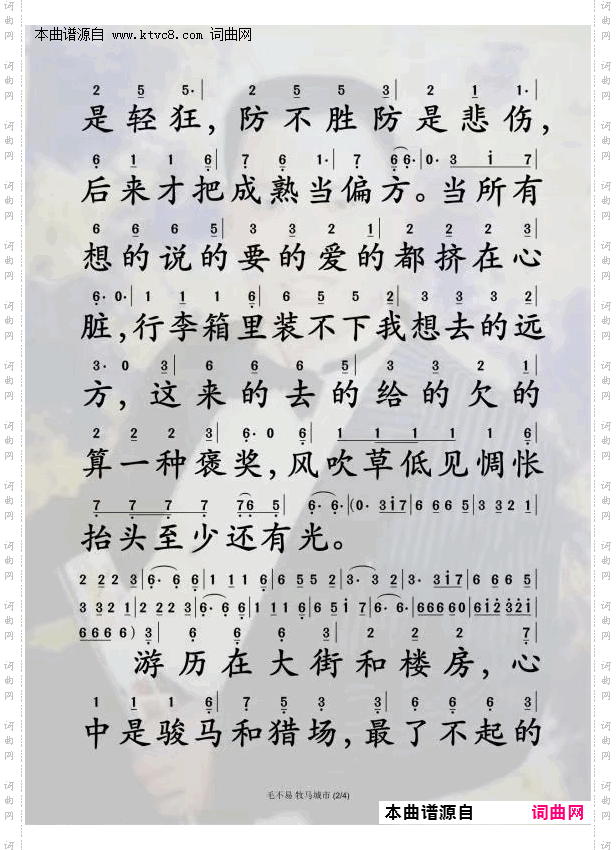 本曲谱源自 www.ktvc8.com 词曲网
2 5 5· | 2 5 5 3 | 2 1 1· |
是轻狂，防不胜防是悲伤，
6 1 1 6 | 7 6 1· | 7 6 6· | 0· 3 i 7 |
后来才把成熟当偏方。当所有
6 6 6 5 | 3 3 2 1 | 2 2 2 3 |
想的说的要的爱的都挤在心
6· 0· | 1 1 1 6 | 6 5 5 2 | 3 3 3 2 |
脏，行李箱里装不下我想去的远
3· 0 3 | 6 6 6 5 | 3 3 2 1 |
方，这来的去的给的欠的
2 2 2 3 | 6· 0 6 | 1 1 1 1 1 6 |
算一种褒奖，风吹草低见惆怅
7 7 7 7 7 6 5 | 6· 6· | (0· 3 i 7 | 6 6 6 5 | 3 3 2 1 |
抬头至少还有光。
2 2 2 3 | 6· 6 6 | 1 1 1 6 | 6 5 5 2 | 3· 3 2 | 3· 3 i 7 | 6 6 6 5 |
3 3 2 1 | 2 2 2 3 | 6· 6 6 | 1 1 1 6 | 6 5 i 7 | 6· 6· | 6 6 6 6 6 0 | 6 i 2 3 2 i |
6 6 6 6 6 ) 3 | 6 6 6 3 | 2 2 2 7 |
游历在大街和楼房，心
1 1 1 6 | 7 5 3 3 | 6 6 6 3 |
中是骏马和猎场，最了不起的
毛不易 牧马城市 (2/4)
本曲谱源自 词曲网